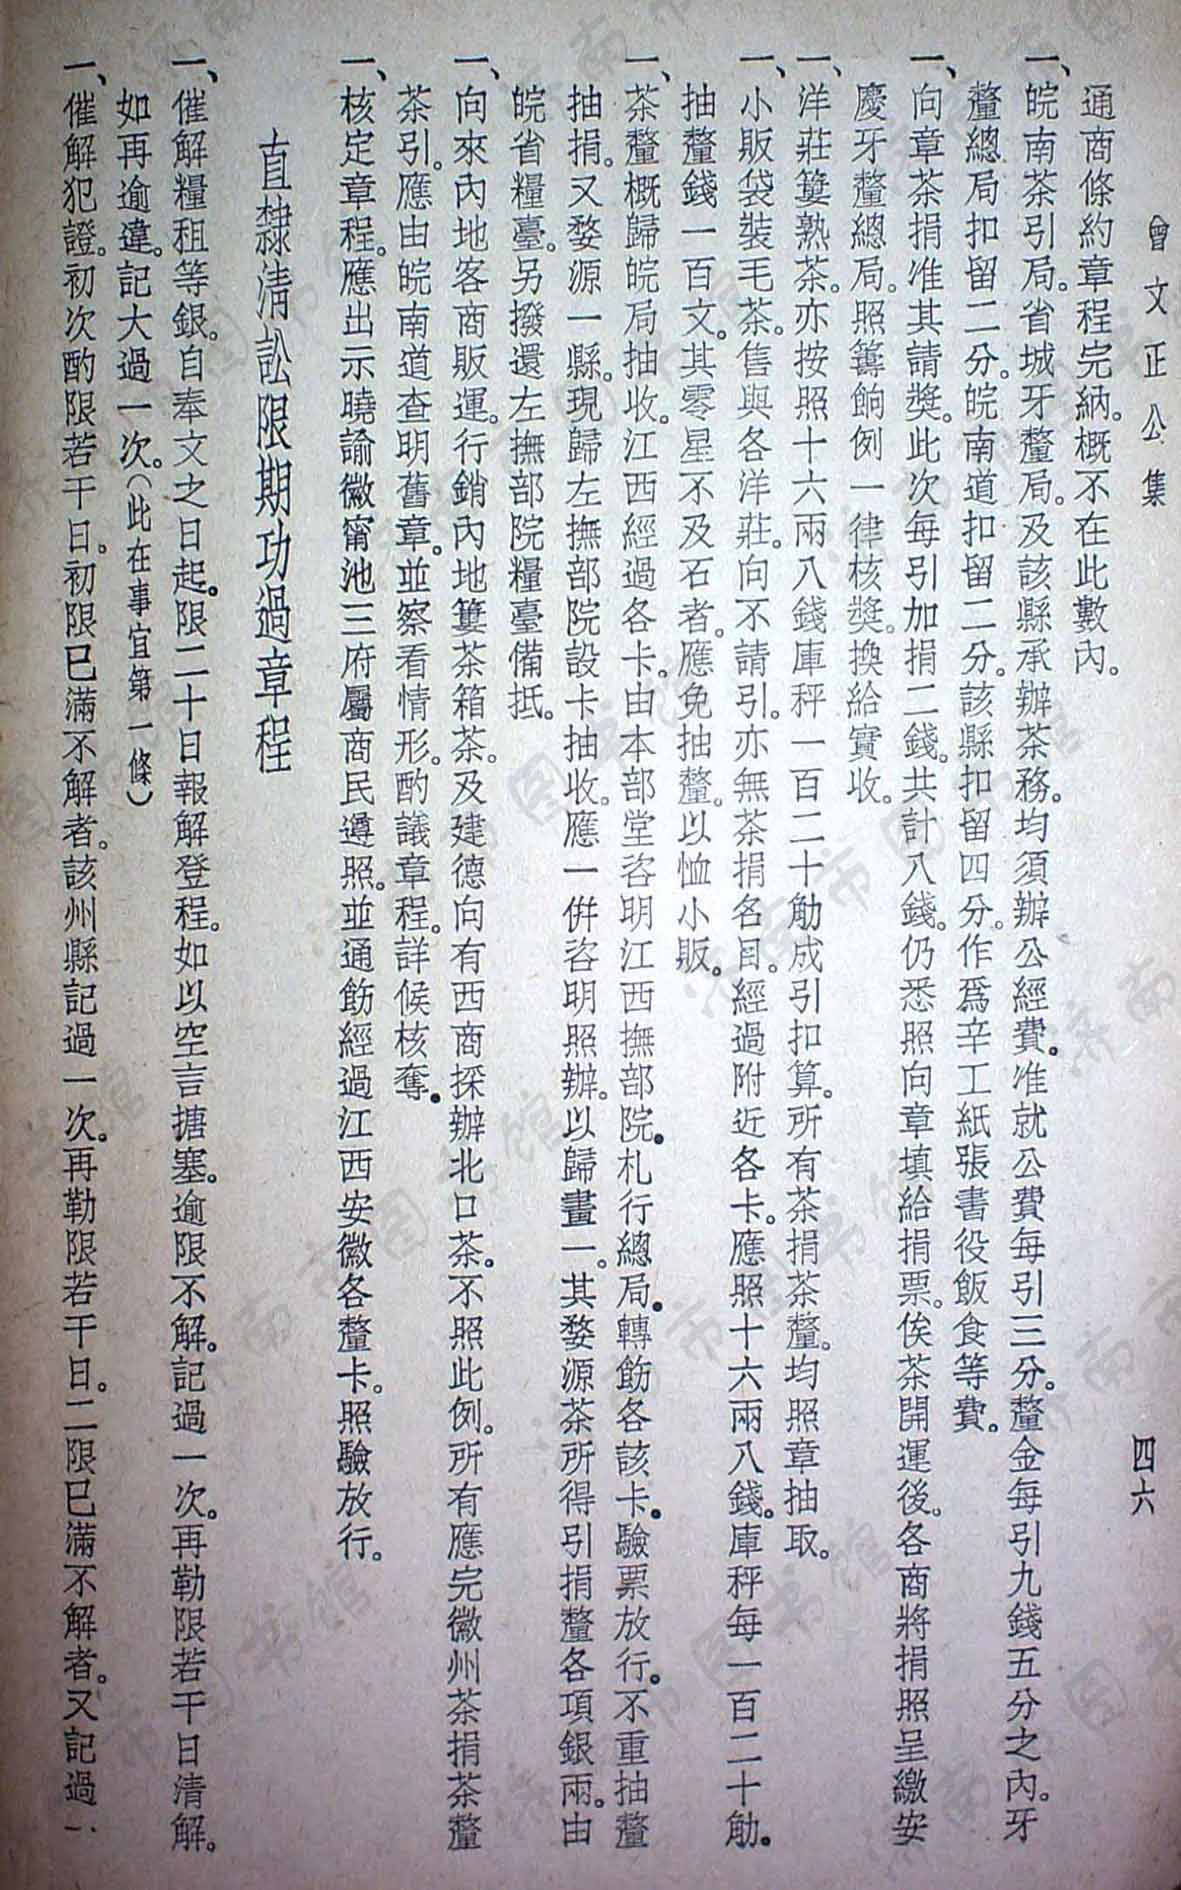 曾文正公集
四六
通商條約章程完納。概不在此數內。
一、皖南茶引局。省城牙釐局。及該縣承辦茶務。均須辦公經費。准就公費每引三分。釐金每引九錢五分之內。牙
釐總局扣留二分。皖南道扣留二分。該縣扣留四分。作爲辛工紙張書役飯食等費。
一、向章茶捐准其請獎。此次每引加捐二錢。共計八錢。仍悉照向章填給捐票。俟茶開運後。各商將捐照呈繳安
慶牙釐總局。照籌餉例一律核獎。換給實收。
一、洋莊簍熟茶。亦按照十六兩八錢庫秤一百二十觔成引扣算。所有茶捐茶釐。均照章抽取。
一、小販袋裝毛茶。售與各洋莊。向不請引。亦無茶捐名目。經過附近各卡。應照十六兩八錢。庫秤每一百二十觔。
抽釐錢一百文。其零星不及石者。應免抽釐。以恤小販。
一、茶釐概歸皖局抽收。江西經過各卡。由本部堂咨明江西撫部院。札行總局。轉飭各該卡。驗票放行。不重抽釐
抽捐。又婺源一縣。現歸左撫部院設卡抽收。應一併咨明照辦。以歸畫一。其婺源茶所得引捐釐各項銀兩。由
皖省糧臺。另撥還左撫部院糧臺備抵。
一、向來內地客商販運。行銷內地簍茶箱茶。及建德向有西商採辦北口茶。不照此例。所有應完徽州茶捐茶釐
茶引。應由皖南道查明舊章。並察看情形。酌議章程。詳候核奪。
一、核定章程。應出示曉諭徽甯池三府屬商民遵照。並通飭經過江西安徽各釐卡。照驗放行。
直隸清訟限期功過章程
一、催解糧租等銀。自奉文之日起。限二十日報解登程。如以空言搪塞。逾限不解。記過一次。再勒限若干日清解。
如再逾違。記大過一次。(此在事宜第一條)
一、催解犯證。初次酌限若干日。初限已滿不解者。該州縣記過一次。再勒限若干日。二限已滿不解者。又記過一